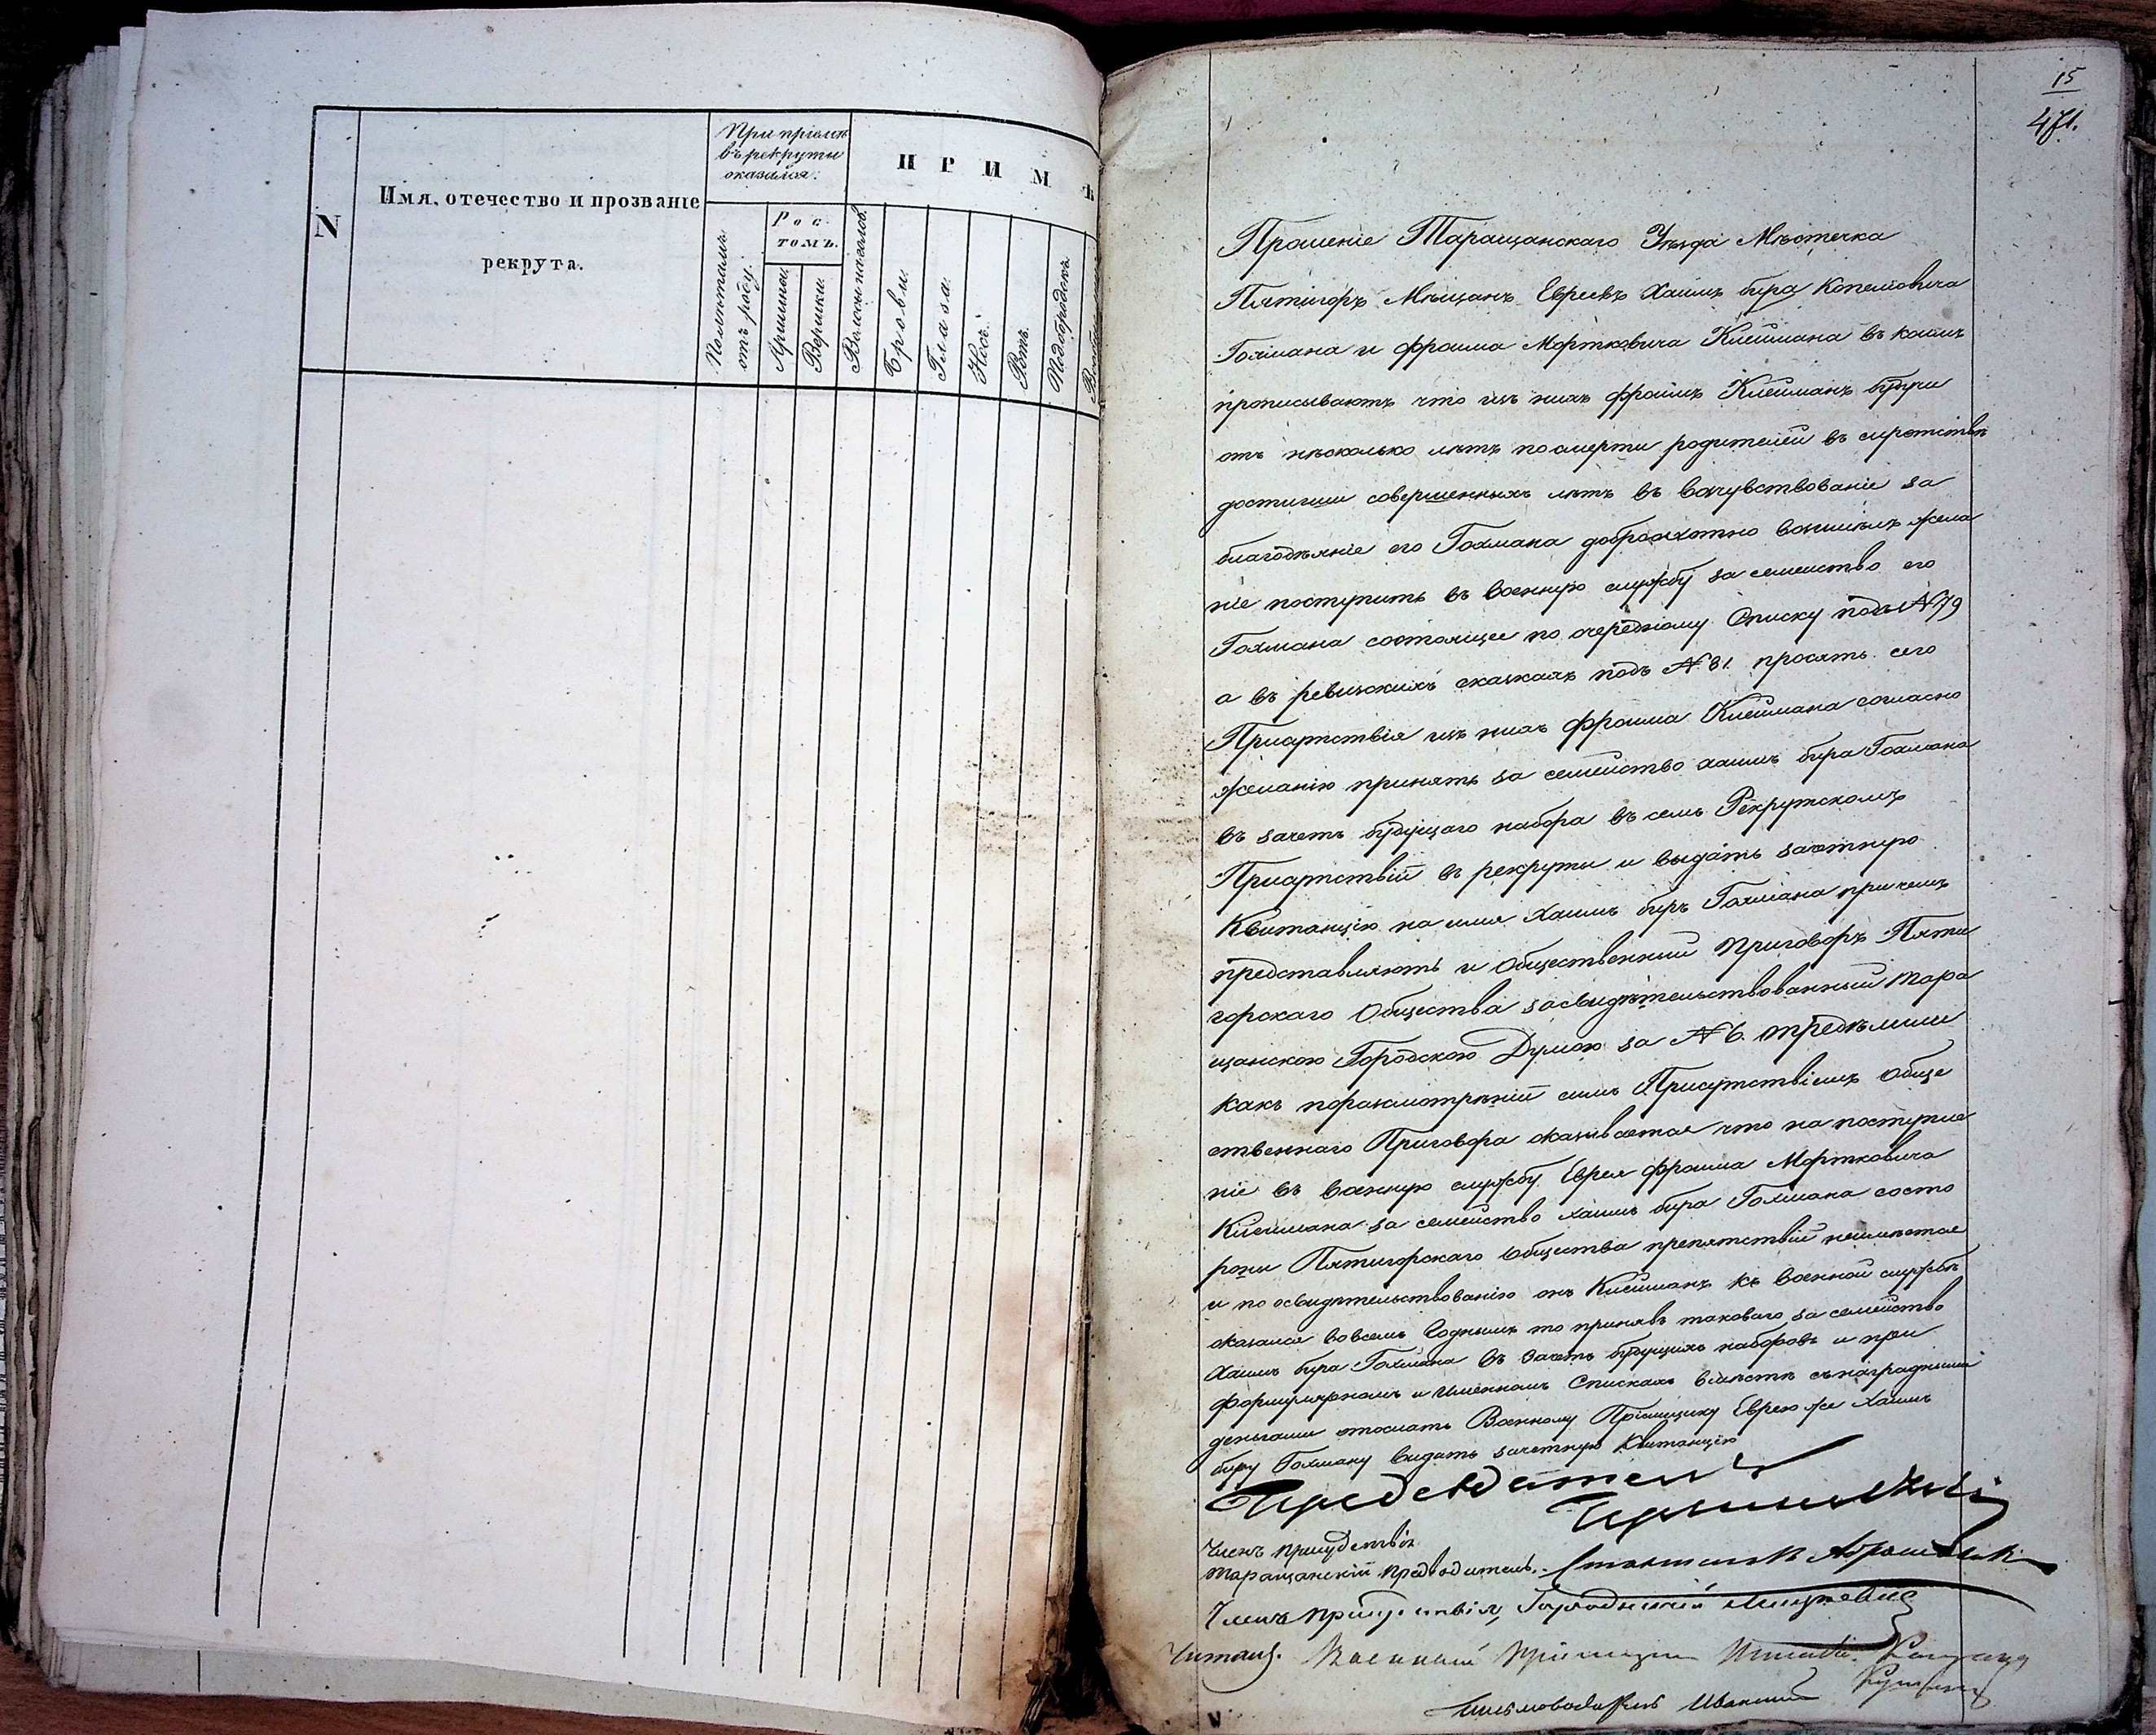 N
Имя, отечество и прозваніе
рекрута.
При пріемѣ
въ рекруты
оказался:
Полѣтамъ
отъ роду.
Рос
томъ.
Аршины.
Вершки.
П Р И М Ѣ
Волосы на голов.
Брови.
Глаза.
Носъ.
Ротъ.
Подбородокъ.
15
471.
Прошеніе Таращанскаго Уѣзда Мѣстечка
Пятигоръ Мѣщанъ Евреевъ Хаимъ бера
Гохмана и Фроима Мортковича Клеймана въ коемъ
прописываютъ что изъ нихъ Фроимъ Клейманъ будучи
отъ нѣсколько лѣтъ посмерти родителей въ сиротствѣ
достигши совершенныхъ лѣтъ въ вочувствованіе за
благодѣяніе его Гохмана доброохотно возимѣлъ жела
ніе поступить въ военную службу за семейство его
Гохмана состоящее по очередному Списку подъ № 79
а въ ревизскихъ сказкахъ подъ № 81. просятъ сего
Присутствія изъ нихъ Фроима Клеймана согласно
желанію принять за семейство хаимъ бера Гохмана
въ зачетъ будущаго набора въ семъ Рекрутскомъ
Присутствіи въ рекруты и выдать зачетную
Квитанцію на имя Хаимъ беръ Гохмана причемъ
представляютъ и Общественный Приговоръ Пяти
горскаго Общества засвидѣтельствованный Тара
щанскою Городскою Думою за № 6. предѣлили
какъ поразсмотрѣніи симъ Присутствіемъ обще
ственнаго Приговора оказывается что на поступле
ніе въ военную службу Еврея Фроима Мортковича
Клеймана за семейство хаимъ бера Гохмана состо
роны Пятигорскаго Общества препятствій неимѣется
и по освидѣтельствованію онъ Клейманъ къ военной службѣ
оказался вовсемъ Годнымъ то принявъ таковаго за семейство
Хаимъ бера Гохмана въ Зачетъ будущихъ наборовъ и при
Формулярномъ и Именномъ Спискахъ вмѣстѣ съ наградными
деньгами отослать Военному Пріемщику Еврею же Хаимъ
беру Гохману выдать зачетную Квитанцію
Председатель
Членъ присудствія
Таращанскій предводитель.
Членъ присудствія, Городничій
Читалъ. Военный Пріемщикъ
письмоводитель